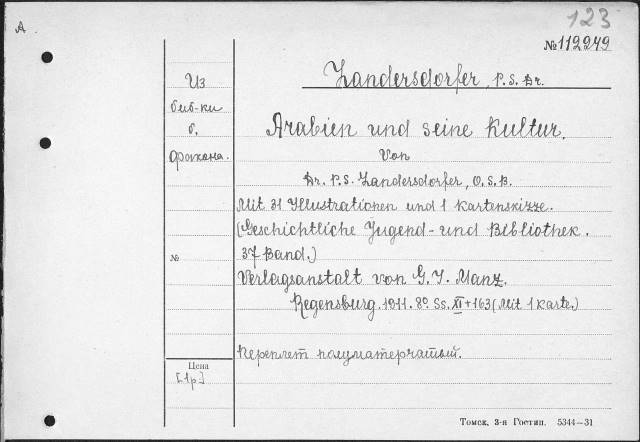 A
123
№ 112249
Zandersdorfer, P. S. Dr.
Из
биб-ки
б.
Фрокана.
Arabien und seine Kultur.
von
Dr. P. S. Zandersdorfer, O. S. B.
Mit 31 Illustrationen und 1 Kartenskizze.
(Geschichtliche Jugend- und Bibliothek.
№
37 Band.)
Verlagsanstalt von G. J. Manz.
Regensburg. 1911. 8° Ss. XI + 163 (Mit 1 Karte.)
Переплет полуматерчатый.
Цена
[1р]
Томск. 3-я Гостип. 5344—31